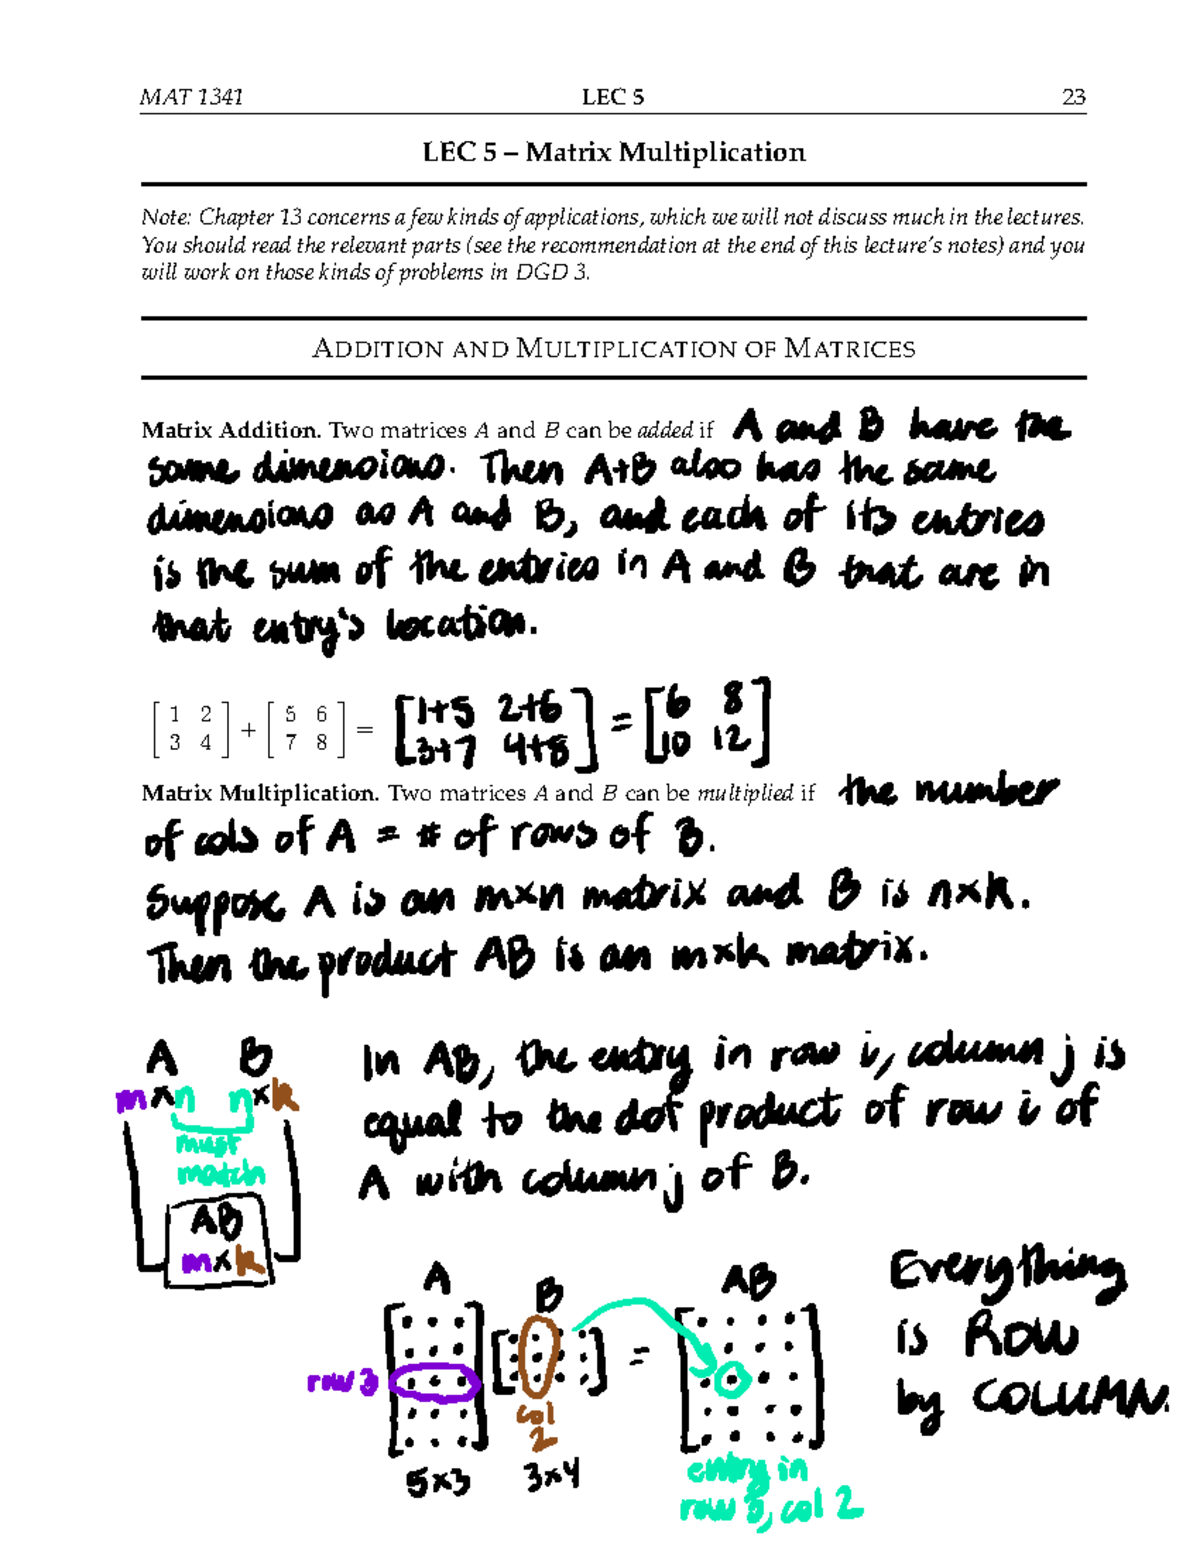 MAT 1341 LEC 5 23
LEC 5 – Matrix Multiplication
Note: Chapter 13 concerns a few kinds of applications, which we will not discuss much in the lectures.
You should read the relevant parts (see the recommendation at the end of this lecture's notes) and you
will work on those kinds of problems in DGD 3.
ADDITION AND MULTIPLICATION OF MATRICES
Matrix Addition. Two matrices A and B can be added if A and B have the
same dimensions. Then A+B also has the same
dimensions as A and B, and each of its entries
is the sum of the entries in A and B that are in
that entry's location.
[ 1 2 ] + [ 5 6 ] = [ 1+5 2+6 ] = [ 6 8 ]
[ 3 4 ] [ 7 8 ] [ 3+7 4+8 ] [ 10 12 ]
Matrix Multiplication. Two matrices A and B can be multiplied if the number
of cols of A = # of rows of B.
Suppose A is an m×n matrix and B is n×k.
Then the product AB is an m×k matrix.
A B
m×n n×k
must
match
AB
m×k
In AB, the entry in row i, column j is
equal to the dot product of row i of
A with column j of B.
A B = AB
row 3
col
2
5×3 3×4
entry in
row 3, col 2
Everything
is ROW
by COLUMN.